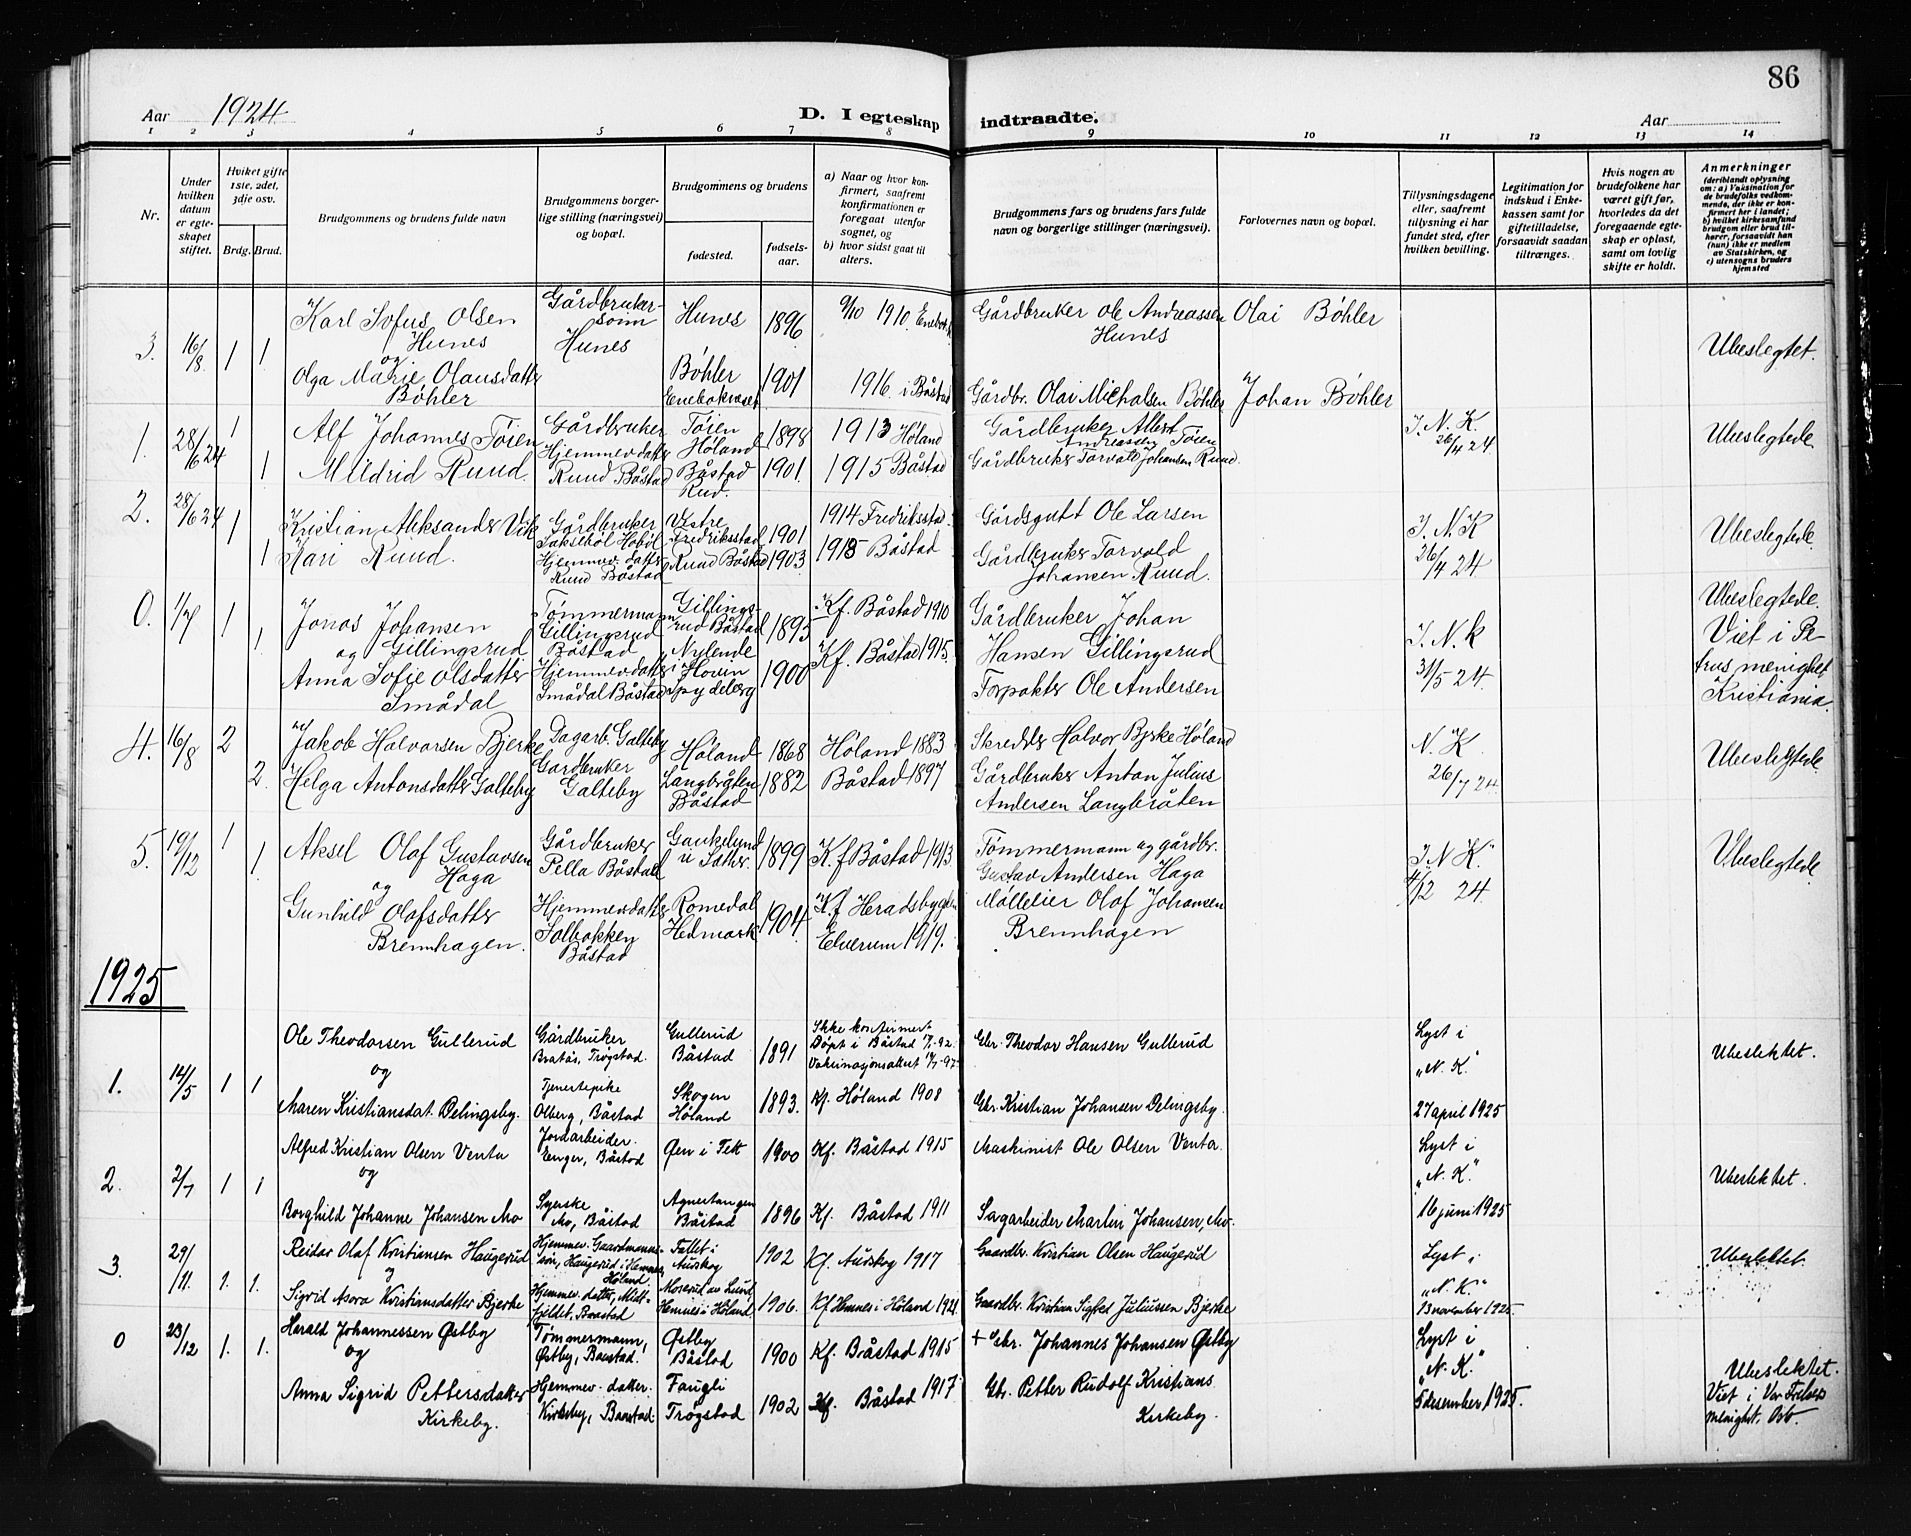 86
Aar 1924
D. I egteskap indtraadte.
Aar
1 2 3 4 5 6 7 8 9 10 11 12 13 14
Nr.
Under hvilken datum er egteskapet stiftet.
Hviket gifte 1ste, 2det, 3dje osv.
Brdg. Brud.
Brudgommens og brudens fulde navn
Brudgommens borgerlige stilling (næringsvei) og bopæl.
Brudgommens og brudens
fødested.
fødselsaar.
a) Naar og hvor konfirmert, saafremt konfirmationen er foregaat utenfor sognet, og
b) hvor sidst gaat til alters.
Brudgommens fars og brudens fars fulde navn og borgerlige stillinger (næringsvei).
Forlovernes navn og bopæl.
Tillysningsdagene eller, saafremt tillysning ei har fundet sted, efter hvilken bevilling.
Legitimation for indskud i Enkekassen samt for giftetilladelse, forsaavidt saadan tiltrænges.
Hvis nogen av brudefolkene har været gift før, hvorledes da det foregaaende egteskap er opløst, samt om lovlig skifte er holdt.
Anmerkninger
(deriblandt oplysning om: a) Vaksination for de brudefolks vedkommende, der ikke er konfirmert her i landet; b) hvilket kirkesamfund brudgom eller brud tilhører, forsaavidt han (hun) ikke er medlem av Statskirken, og c) utensogns bruders hjemsted
3. 16/8 1 1
Karl Sofus Olsen
Hunes
og
Olga Marie Olausdatter
Bøhler
Gårdbruker-
sønn
Hunes
Hunes 1896
Bøhler
Enebakvæset 1901
9/10 1910 Enebak
1916 i Båstad
Gårdbruker Ole Andreassen
Hunes
Gårdbr. Olai Michalsen Bøhler
Olai Bøhler
Johan Bøhler
Ubeslegtet.
1. 28/6 24 1 1
Alf Johannes Tøien
Mildrid Ruud.
Gårdbruker
Hjemmev. datter
Ruud Båstad
Tøien
Høland 1898
Båstad
Rud. 1901
1913 Høland
1915 Båstad
Gårdbruker Albert
Andreassen Tøien
Gårdbruker Torvald Johansen Ruud.
I. N. K.
26/4 24
Ubeslegtede
2. 28/6 24 1 1
Kristian Aleksander Vik
Kari Ruud.
Gårdbruker
Saksebøl Hobøl
Hjemmev. datter
Ruud Båstad
Vestre
Fredriksstad 1901
Ruud Båstad 1903
1914 Fredriksstad
1918 Båstad
Gårdsgutt Ole Larsen
Gårdbruker Torvald
Johansen Ruud.
I. N. K
26/4 24
Ubeslegtede
0. 1/7 1 1
Jonas Johansen
og Gillingsrud
Anna Sofie Olsdatter
Smådal
Tømmermann
Gillingsrud
Båstad
Hjemmevdatter
Smådal Båstad
Gillings-
rud Båstad 1895
Nylende
i Hovin
Spydeberg 1900
Kf. Båstad 1910
Kf. Båstad 1915.
Gårdbruker Johan
Hansen Gillingsrud
Forpakter Ole Andersen
I. N. K
31/5 24.
Ubeslegtede.
Viet i Pe-
trus menighet
Kristiania.
4. 16/8 2 2.
Jakob Halvorsen Bjerke
Helga Antonsdatter Galteby
Dagarb. Galteby
Gårdbruker
Galteby
Høland 1868
Langbråten
Båstad 1882
Høland 1883
Båstad 1897
Skredder Halvor Bjerke Høland
Gårdbruker Anton Julius
Andersen Langbråten
N. K.
26/7 24
Ubeslegtede
5. 19/12 1 1
Aksel Olaf Gustavsen
og Haga
Gunhild Olafsdatter
Brennhagen.
Gårdbruker
Pella Båstad
Hjemmevdatter
Solbakken
Båstad
Gaukelund
u Sæther. 1899
Romedal
Hedmark 1904
K. f Båstad 1913
K. f Heradsbygden
Elverum 1919.
Tømmermann og gårdbr.
Gustav Andersen Haga
Møllelier Olaf Johansen
Brennhagen
I. N. K.
4/12 24
Ubeslegtede
1925
1. 14/5 1 1
Ole Theodorsen Gullerud
og
Maren Kristiansdat. Delingsby.
Gårdbruker
Bratås, Trøgstad.
Tjenestepike
Olberg, Båstad
Gullerud
Båstad 1891
Skogen
Høland 1893.
Ikke konfirmert
Døpt i Båstad
Vaksinasjonsattest
Kf. Høland 1908
Gbr. Theodor Hansen Gullerud
Gbr. Kristian Johansen Delingsby.
Lyst i
„N. K."
27 april 1925
Ubeslektet.
2. 2/7 1 1
Alfred Kristian Olsen Venta
og
Borghild Johanne Johansen Mo
Jordarbeider.
Enger, Båstad
Syerske
Mo, Båstad
Øen i Tett 1900
Agnestangen
Båstad 1896
Kf. Båstad 1915
Kf. Båstad 1911
Maskinist Ole Olsen Venta.
Sagarbeider Martin Johansen, Mo.
Lyst i
„N. K."
16 juni 1925
Ubeslektet.
3. 29/11. 1. 1.
Reidar Olaf Kristiansen Haugerud
og
Sigrid Asora Kristiansdatter Bjerke
Hjemmev. Gaardmanns-
søn, Haugerud i Hemnes,
Høland
Hjemmev. datter, Midt-
fjeldet, Baastad
Fallet i
Aurskog 1902
Moserud av Lund
Hemnes i Høland 1906.
Kf. Aurskog 1917
Kf Hemnes i Høland 1921
Gaardbr. Kristian Olsen Haugerud
Gaardbr. Kristian Sigfred Juliussen Bjerke
Lyst i
„N. K."
13 november 1925.
Ubeslektet.
0 23/12 1. 1.
Harald Johannessen Østby
og
Anna Sigrid Pettersdatter
Kirkeby.
Tømmermann,
Østby, Baastad.
Hjemmev. datter.
Kirkeby, Baastad
Østby
Båstad 1900
Faugli
Trøgstad 1902
Kf. Båstad 1915
Kf. Båstad 1917
+ Gbr. Johannes Johansen Østby
Gbr. Petter Rudolf Kristians.
Kirkeby.
Lyst i
„N. K."
5 desember 1925.
Ubeslektet.
Viet i Vor Frelsers
menighet. Oslo.